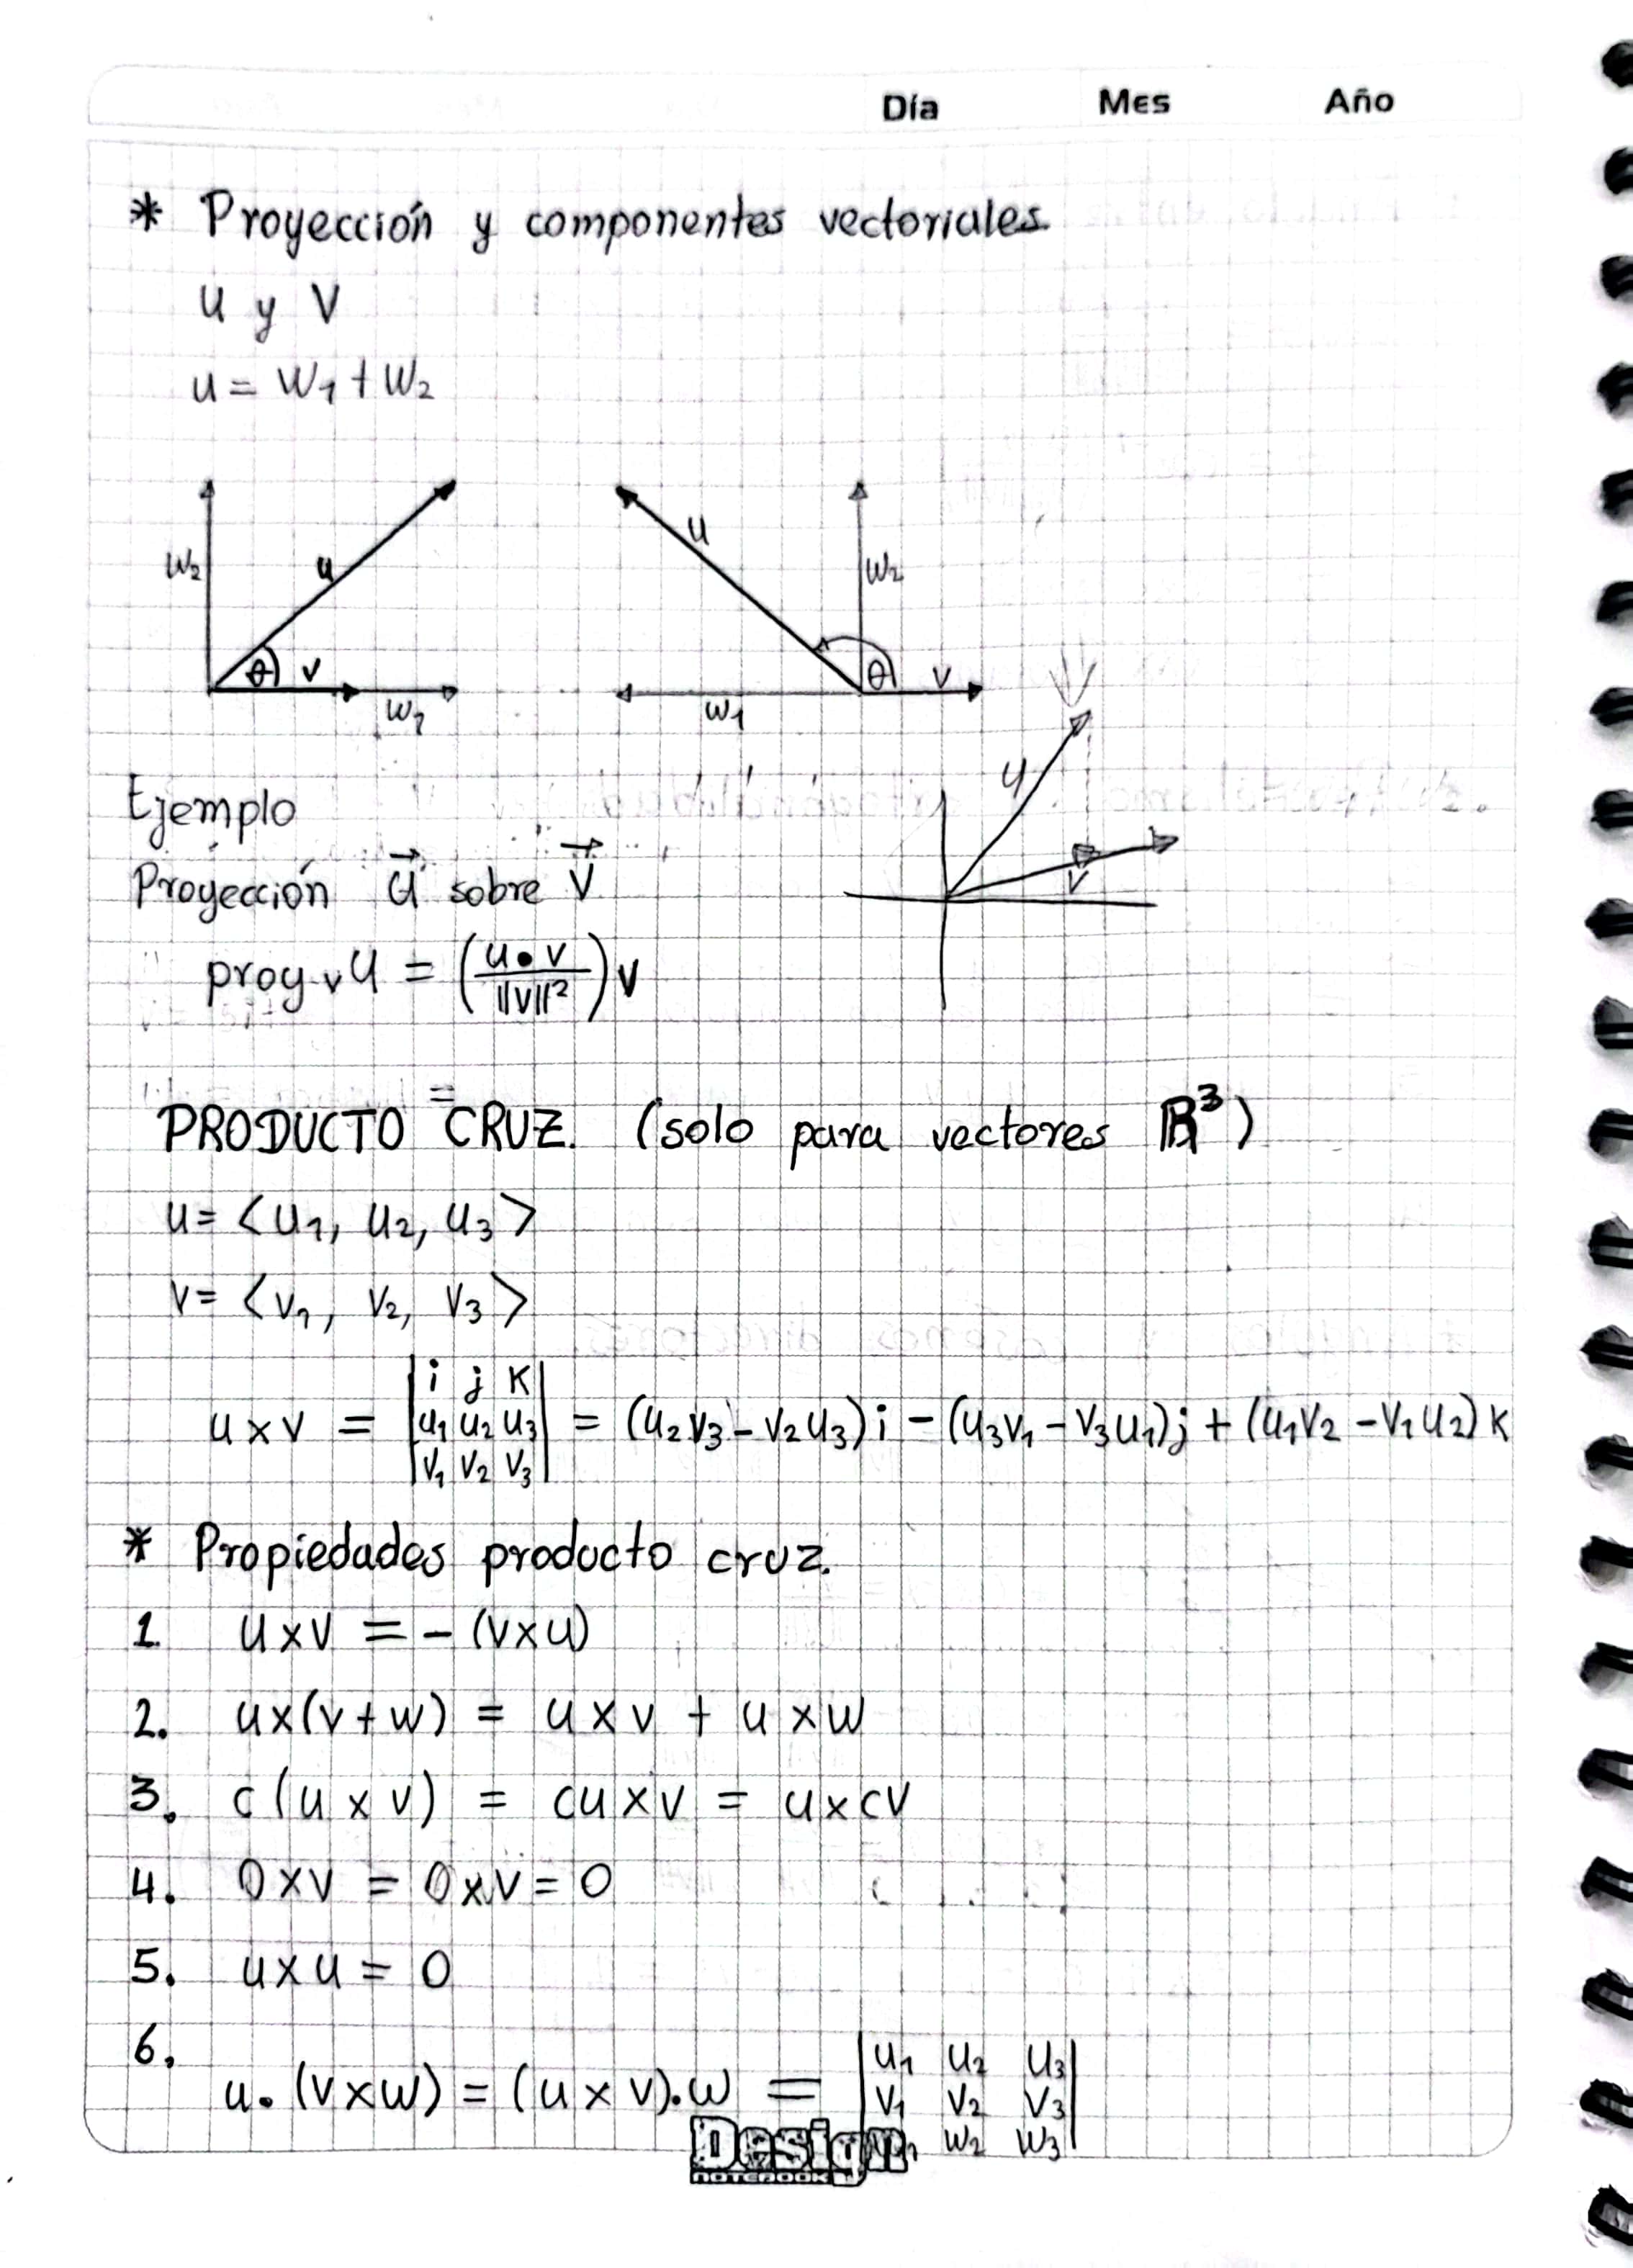 Día Mes Año
* Proyección y componentes vectoriales
u y v
u = w₁ + w₂
w₂ u θ v w₁
u w₂ θ v w₁
u v
Ejemplo
Proyección u⃗ sobre v⃗
proy ᵥ u = (u • v / ||v||²) v
PRODUCTO CRUZ. (solo para vectores ℝ³)
u = <u₁, u₂, u₃>
v = <v₁, v₂, v₃>
u x v = |i j k; u₁ u₂ u₃; v₁ v₂ v₃| = (u₂v₃ - v₂u₃)i - (u₃v₁ - v₃u₁)j + (u₁v₂ - v₁u₂)k
* Propiedades producto cruz.
1. u x v = - (v x u)
2. u x (v + w) = u x v + u x w
3. c (u x v) = cu x v = u x cv
4. 0 x v = 0 x v = 0
5. u x u = 0
6.
u . (v x w) = (u x v) . w = |u₁ u₂ u₃; v₁ v₂ v₃; w₂ w₃|
Design
NOTEBOOK